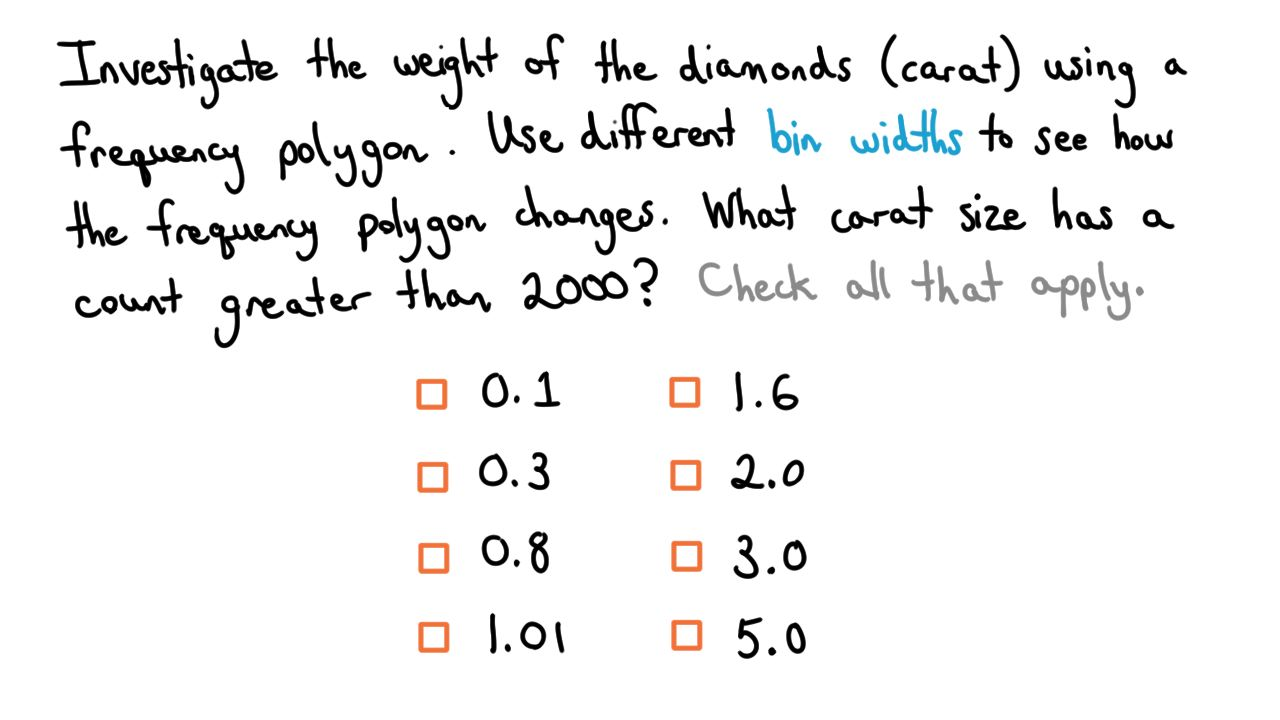 Investigate the weight of the diamonds (carat) using a
frequency polygon. Use different bin widths to see how
the frequency polygon changes. What carat size has a
count greater than 2000? Check all that apply.
0.1
0.3
0.8
1.01
1.6
2.0
3.0
5.0